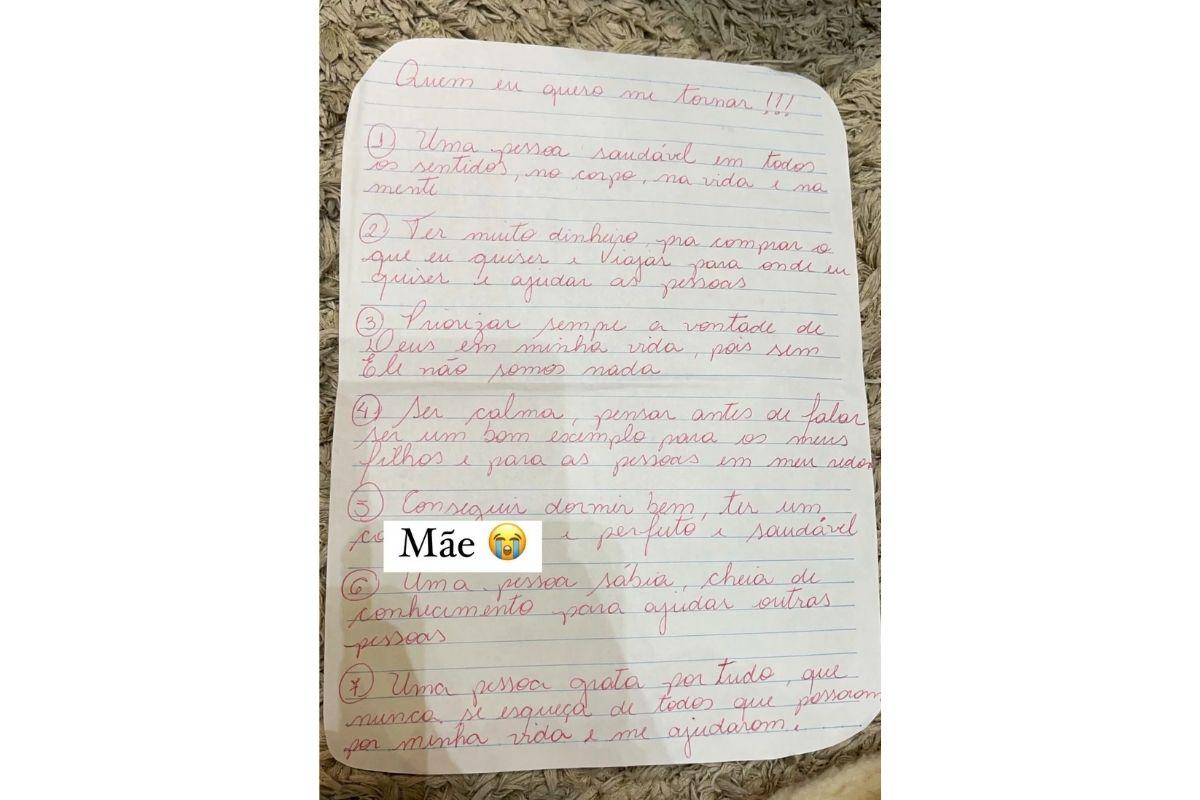 Quem eu quero me tornar!!!
1 Uma pessoa saudável em todos
os sentidos, no corpo, na vida e na
mente
2 Ter muito dinheiro, pra comprar o
que eu quiser e viajar para onde eu
quiser e ajudar as pessoas
3 Priorizar sempre a vontade de
Deus em minha vida, pois sem
Ele não somos nada
4 Ser calma, pensar antes de falar
ser um bom exemplo para os meus
filhos e para as pessoas em meu redor
5 Conseguir dormir bem, ter um
e perfeito e saudável
Mãe 😭
6 Uma pessoa sábia, cheia de
conhecimento para ajudar outras
pessoas
7 Uma pessoa grata por tudo, que
nunca se esqueça de todos que passaram
por minha vida e me ajudaram.